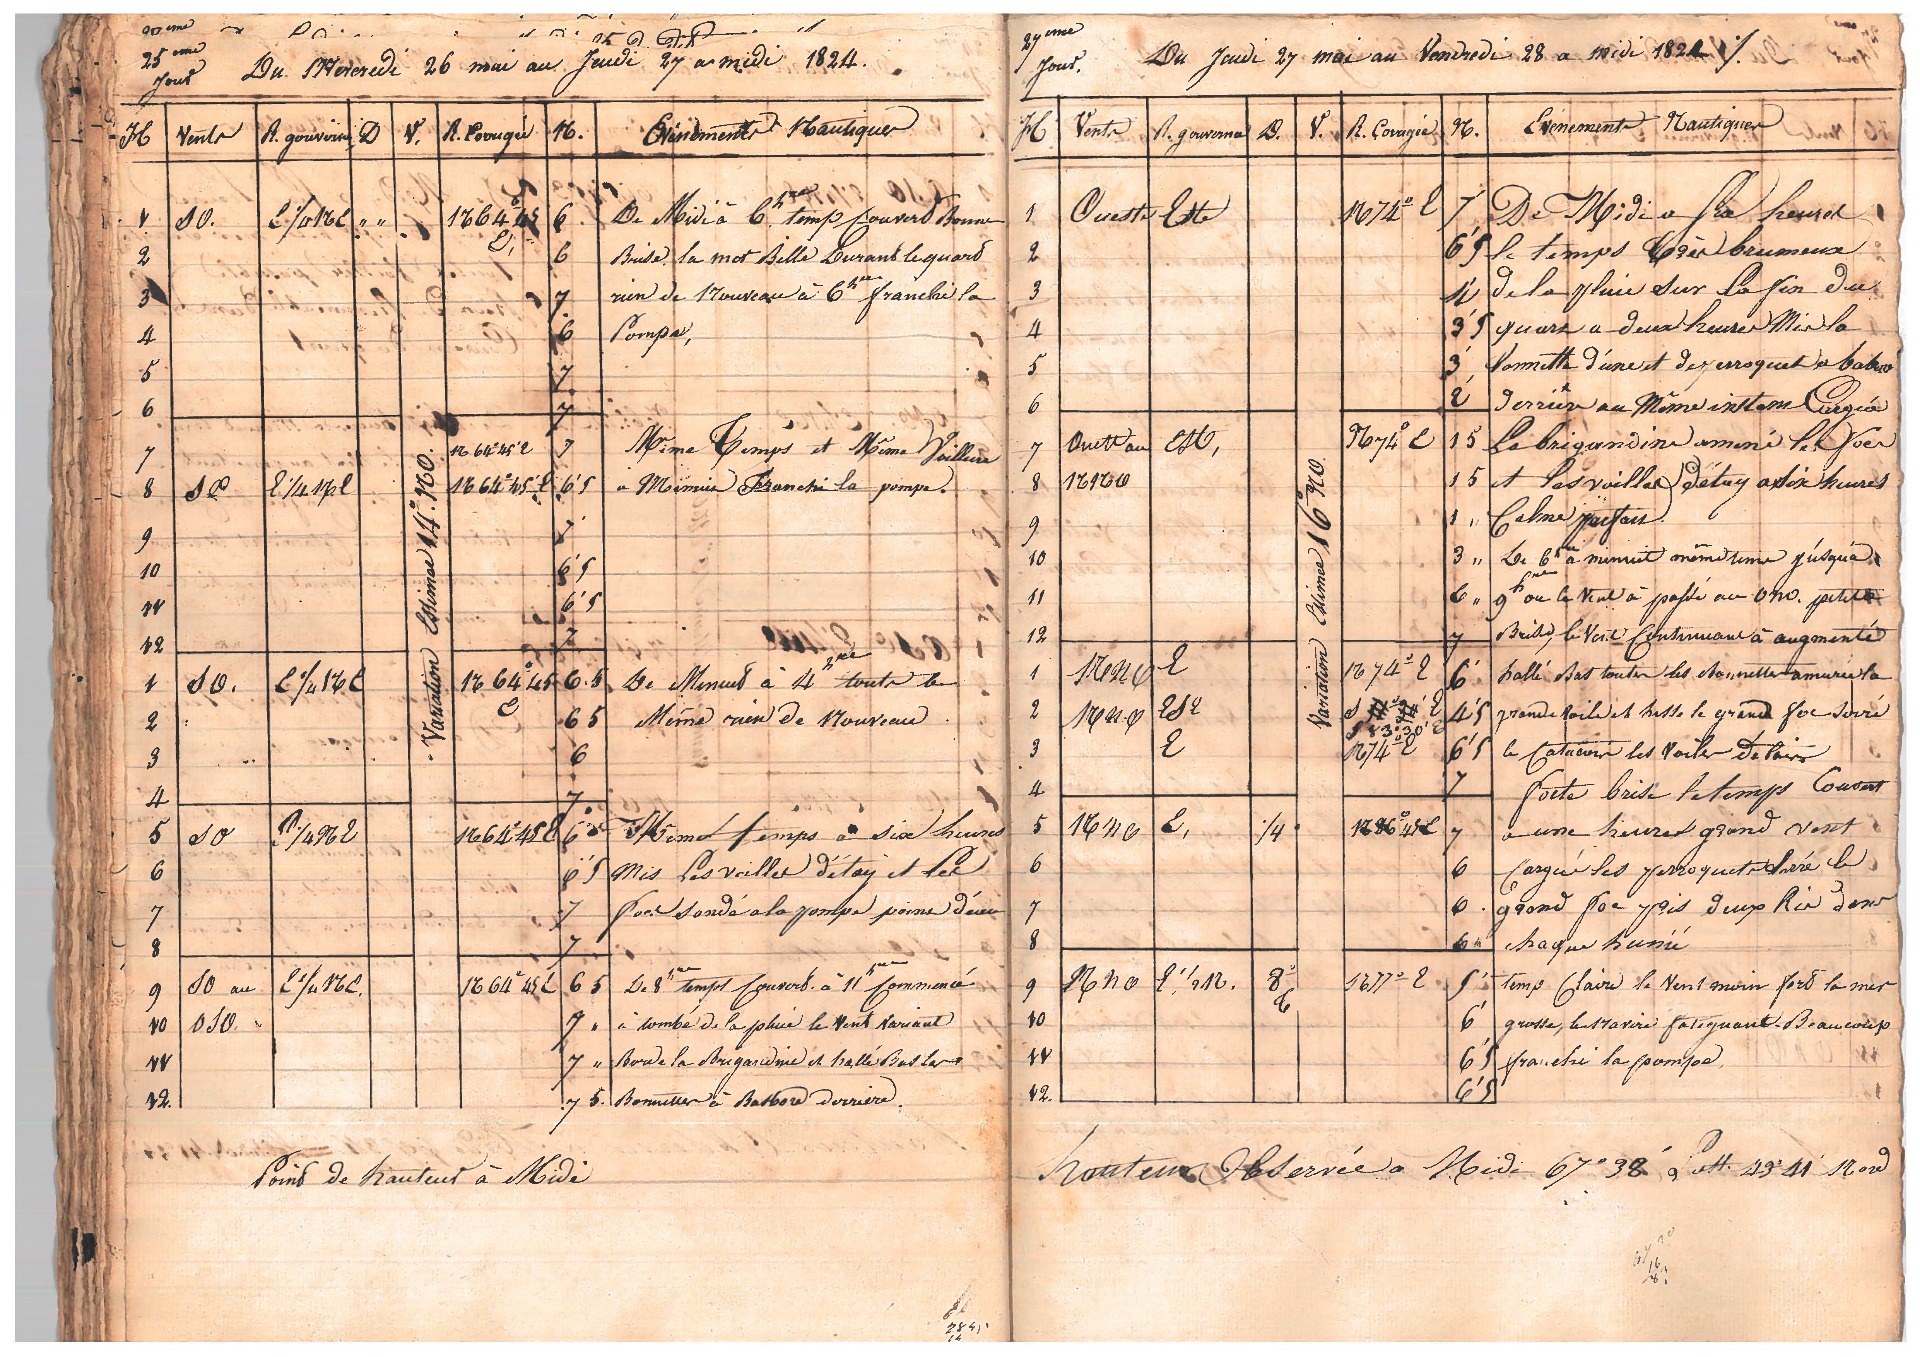 25eme Jour
Du Mercredi 26 mai au Jeudi 27 a midi 1824.
H Vents R. gouverné D V. R. Corrigée N. Evénements Nautiques
1 SO. E 1/4 NE " " N 64° 45 E, 6 De Midi à 6 hres temp Couverd Bonne
2 6 Brise la mer Belle Durant le quard
3 7 rien de Nouveau à 6 hres franchi la
4 6 Pompe,
5 7
6 7
7 N 64° 45' E 7 Même Temps et Même Voillure
8 SO E 1/4 NE N 64° 45' E 6'5 a Mi­nuis Franchi la pompe.
9 7'
10 6'5
11 6'5
12 7
Variation Estimee 14° NO.
1 SO. E 1/4 NE N 64° 45 E 6.5 De Minuid à 4 hres toute le
2 6 5 Même rien de Nouveau
3 6
4 7
5 SO E 1/4 NE N 64° 45 E 6'5 Même temps a six heures
6 6'5 Mis Les voilles d'étay et Les
7 7 focs sondé a la pompe poins d'eau
8 7
9 SO au E 1/4 NE. N 64° 45' E 6 5 De 8 hres temps Couverd. à 11 hres Commencé
10 OSO. 7 " à tombé de la pluie le Vent Variant
11 7 " Bordé la Brigandine et hallé Bas les
12. 7 5. Bonnettes à Babord derriere.
Point de hauteur à Midi
27eme Jour.
Du Jeudi 27 mai au Vendredi 28 a midi 1824 /.
H Vents R. gouverné D. V. R. Corrigée N. Evénements Nautiques
1 Oueste Este N 74° E 7' De Midi a six heures
2 6'5 le temps très brumeux
3 4' de la pluie sur la fin du
4 3'5 quart a deux heures Mis la
5 3' Bonnette d'une et de perroquet a babord
6 2' derrière au Même instans Cargué
7 Ouest au EST, N 74° E 1 5 La brigandine amené les focs
8 NNO 1 5 et les voilles d'étay a six heures
9 1 " Calme parfait.
10 3 " De 6 hres a minuit même tems jusqu'à
11 6 " 9 hres ou le Vent à passé au ONO. petite
12 7 Brise, le Vent Continuant à augmenté
Variation Estimee 16° NO
1 NNO E N 74° E 6' hallé Bas toutes les Bonnettes amuré la
2 NNO ESE S 83° 30' E 4'5 grande voile et hissé le grand foc serré
3 E N 74° E 6'5 le Catacoir les Voiles d'étais
4 7 forte brise le temps Couvert
5 NNO E, 1/4 N 86° 45 E 7 a une heures grand vent
6 6 Cargué les perroquets serré le
7 6. grand foc pris deux Ris dans
8 6 " chaque hunié
9 NNO E 1/2 N. 8° N 77° E 5' temp Claire le Vent moin ford la mer
10 6' grosse, le Navire fatiguant Beaucoup
11 6'5 franchi la pompe.
12. 6'5
hauteur Observée a Midi 67° 38' Latt. 43° 41' Nord